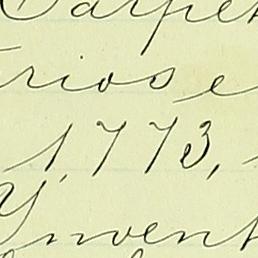 Carpet
rios e
1,773,
Invent